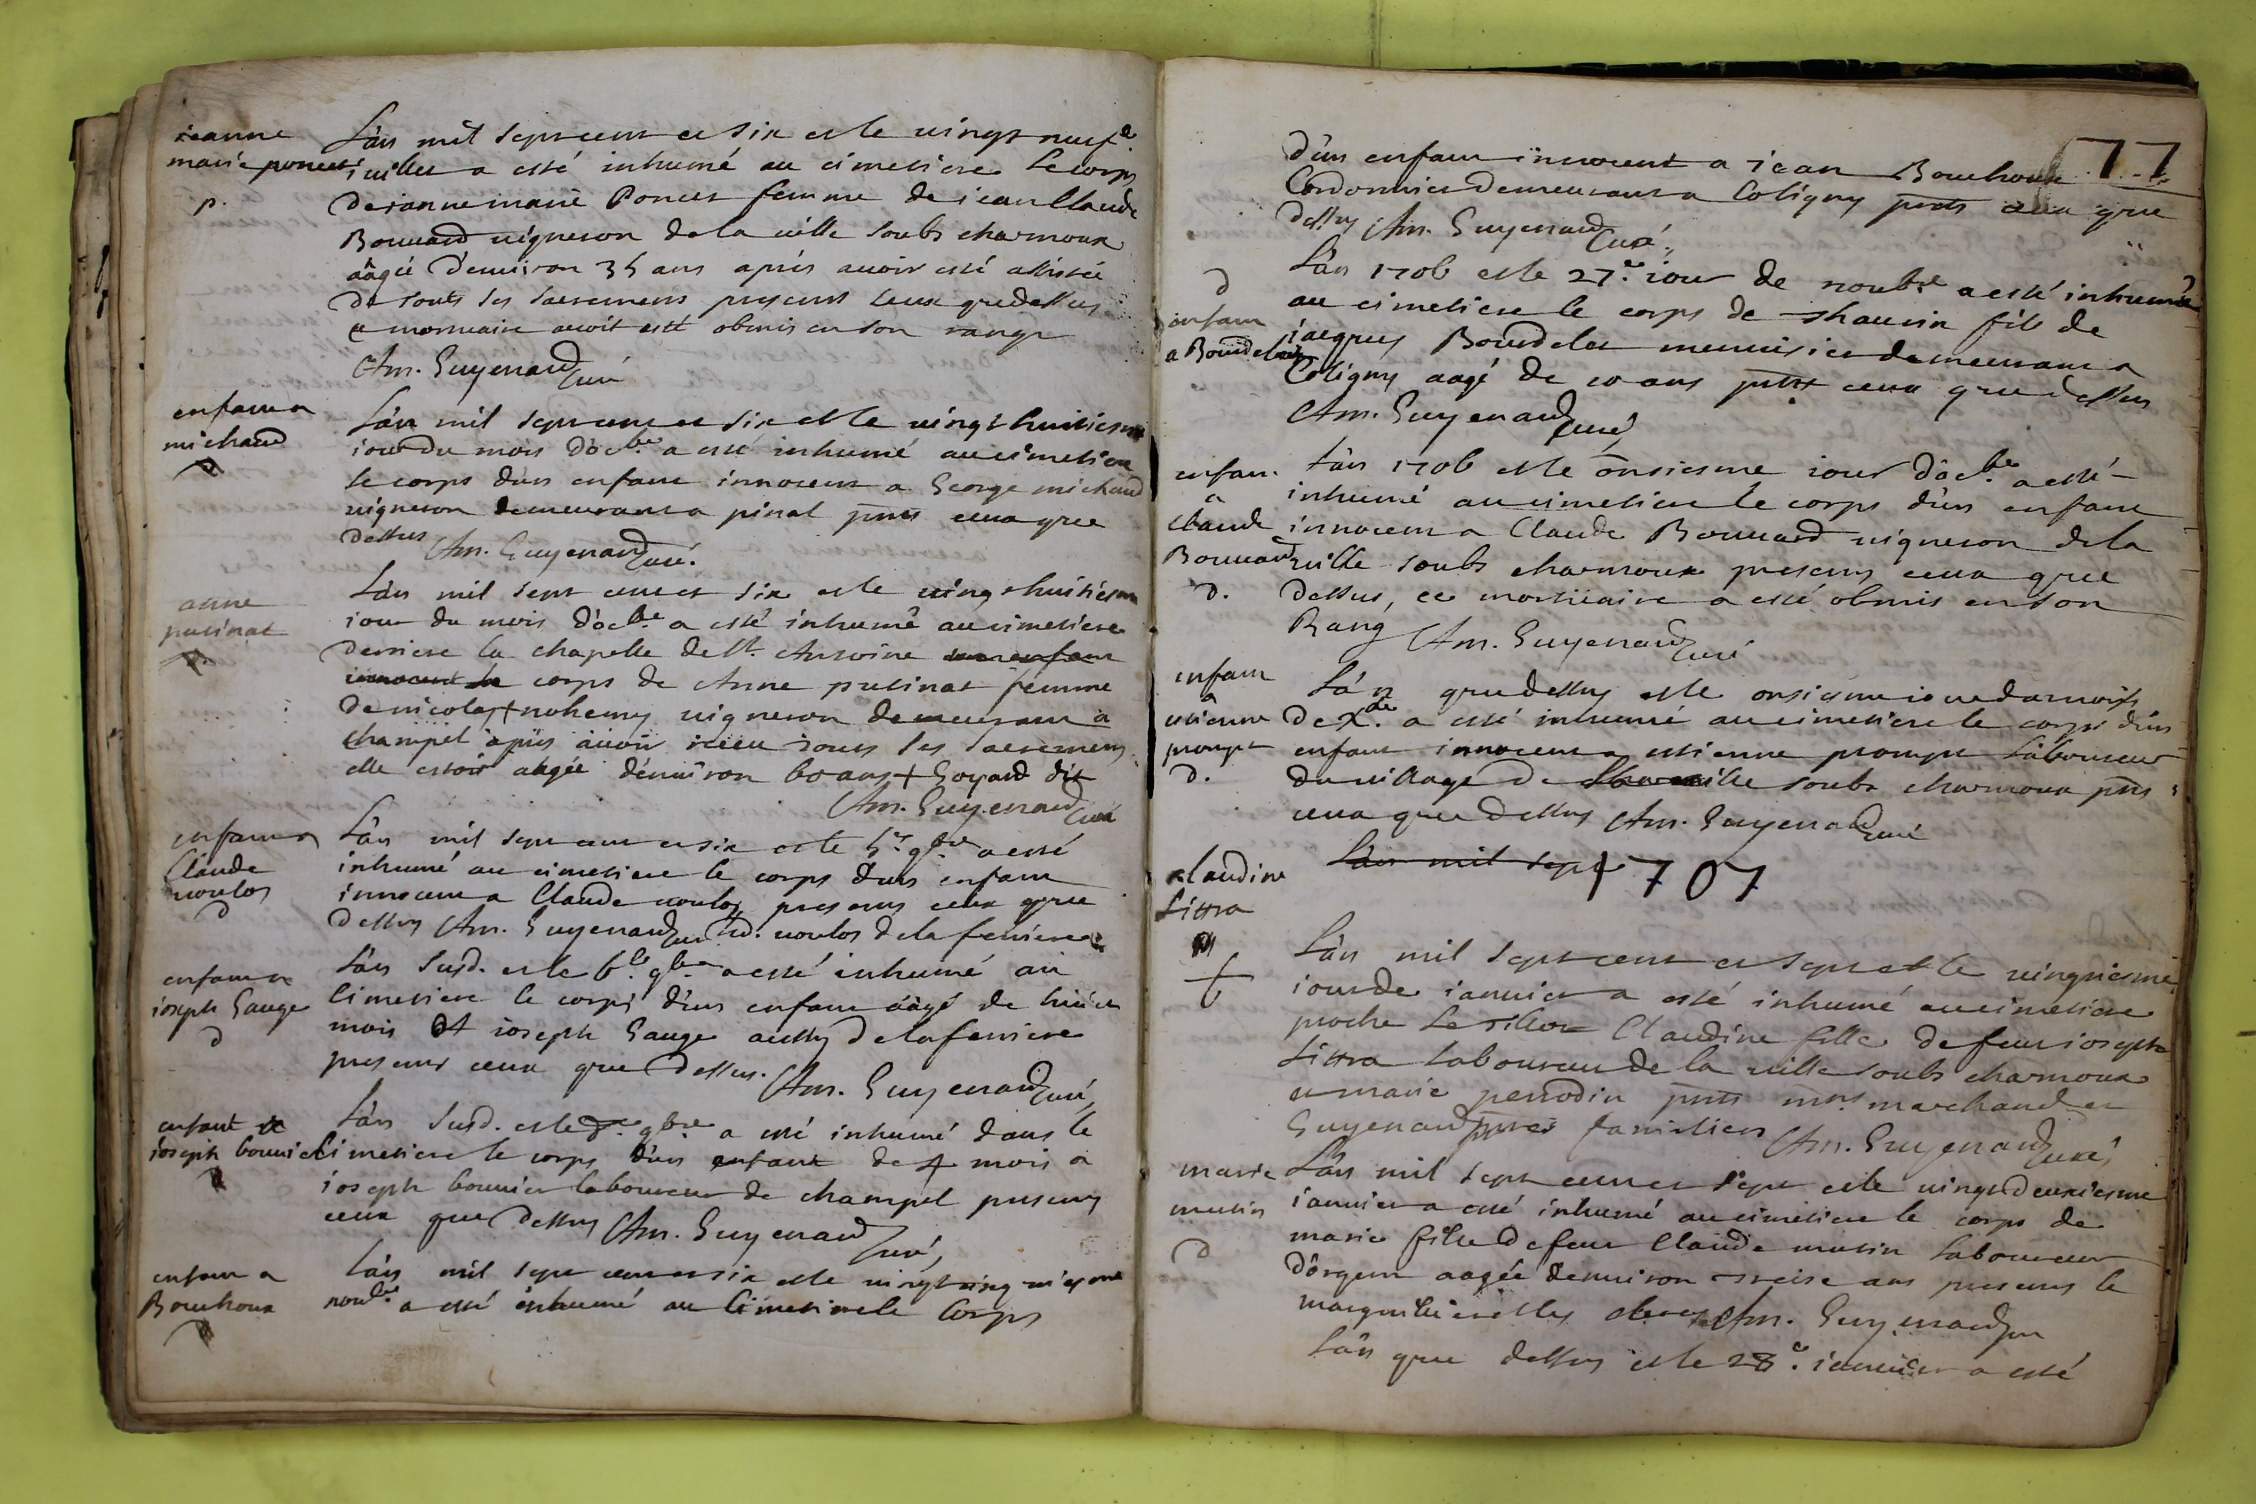 jeanne
marie poncet
p.
L'an mil sept cent et six et le vingt neufe
juillet a esté inhumé au cimetiere le corps
de janne marie Poncet femme de jean Claude
Bouuard uigneron de la uille soubs charmoux
aagée d'enuiron 35 ans aprés auoir esté assistée
de touts ses sacremens presens ceux que dessus
ce mortuaire auoit esté obmis en son rang
Am. Guyenard curé
enfant a
michaud
L'an mil sept cent et six et le uingt huitiesme
iour du mois d'oc.bre a esté inhumé au cimetiere
le corps d'un enfant innocent a George michaud
uigneron demeurant a pinat pnts ceux que
dessus Am. Guyenard curé.
anne
putinat
L'an mil sept cent et six et le uingt huitiesme
iour du mois d'oc.bre a esté inhumé au cimetiere
derriere la chapelle de St. Antoine un enfant
innocent le corps de Anne putinat femme
de nicolas + nohemy uigneron demeurant a
champel apres auoir receu touts ses sacremens
elle estoit aagée d'enuiron 60 ans + Goyard dit
Am. Guyenard curé
enfant a
Claude
uoulos
d
L'an mil sept cent et six et le 5.e 9.bre a esté
inhumé au cimetiere le corps d'un enfant
innocent a Claude uoulos presens ceux que
dessus Am. Guyenard curé uoulos de la ferriere
enfant a
joseph Gauge
d
L'an susd. et le 6.e 9.bre a esté inhumé au
Cimetiere le corps d'un enfant aagé de huict
mois a joseph Gauge aussy de la ferriere
presens ceux que dessus. Am. Guyenard curé,
enfant a
joseph bouuier
L'an susd. et le 9.bre a esté inhumé dans le
Cimetiere le corps d'un enfant de 4 mois a
joseph bouuier laboureur de champel presens
ceux que dessus Am. Guyenard curé,
enfant a
Bouchoux
L'an mil sept cent et six et le uingt cinquiesme
nou.bre a esté inhumé au Cimetiere le Corps
77
d'un enfant innocent a jean Bouchoux
Cordonnier demeurant a Coligny pnts ceux que
dessus Am. Guyenard curé.
d
enfant
a Bourdelat
L'an 1706 et le 27.e iour de nou.bre a esté inhumé
au cimetiere le corps de thaurin fils de
jacques Bourdelat menuisier demeurant a
Coligny aagé de 10 ans pnts ceux que dessus
Am. Guyenard curé,
enfan.
a
claude
Bouuard
d.
L'an 1706 et le onsiesme iour d'oc.bre a esté
inhumé au cimetiere le corps d'un enfant
innocent a Claude Bouuard uigneron de la
uille soubs charmoux presens ceux que
dessus, ce mortuaire a esté obmis en son
Rang Am. Guyenard curé
enfant
a
estienne
prompt
d.
L'an que dessus et le onsiesme iour du mois
de X.bre a esté inhumé au cimetiere le corps d'un
enfant innocent a estienne prompt Laboureur
du uillage de la uille soubs charmoux pnts
ceux que dessus Am. Guyenard curé
L'an mil sept 1707
claudine
Sittra
L'an mil sept cent et sept et le uingtiesme
iour de januier a esté inhumé au cimetiere
proche le tillot Claudine fille de feu joseph
Sittra laboureur de la uille soubs charmoux
et marie perrodin pnts mrs marchand et
Guyenard pbres familiers Am. Guyenard curé,
marie
mutin
d
L'an mil sept cent et sept et le uingt deuxiesme
januier a esté inhumé au cimetiere le corps de
marie fille de feu Claude mutin Laboureur
d'orgent aagée d'enuiron treise ans presens le
marguillier et les Am. Guyenard curé
L'an que dessus et le 28.e januier a esté